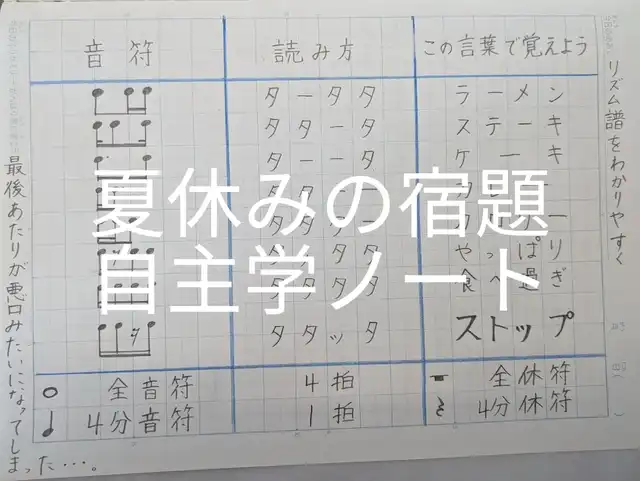 音符 読み方 この言葉で覚えよう
タータタ ラーメン
タタータ ステーキ
ターータ ケーキ
夏休みの宿題
自主学ノート
タタタタ やっぱり
タタタタ 食べ過ぎ
タタッタ ストップ
全音符 4拍 全休符
4分音符 1拍 4分休符
リズム譜をわかりやすく
最後あたりが悪口みたいになってしまった…。